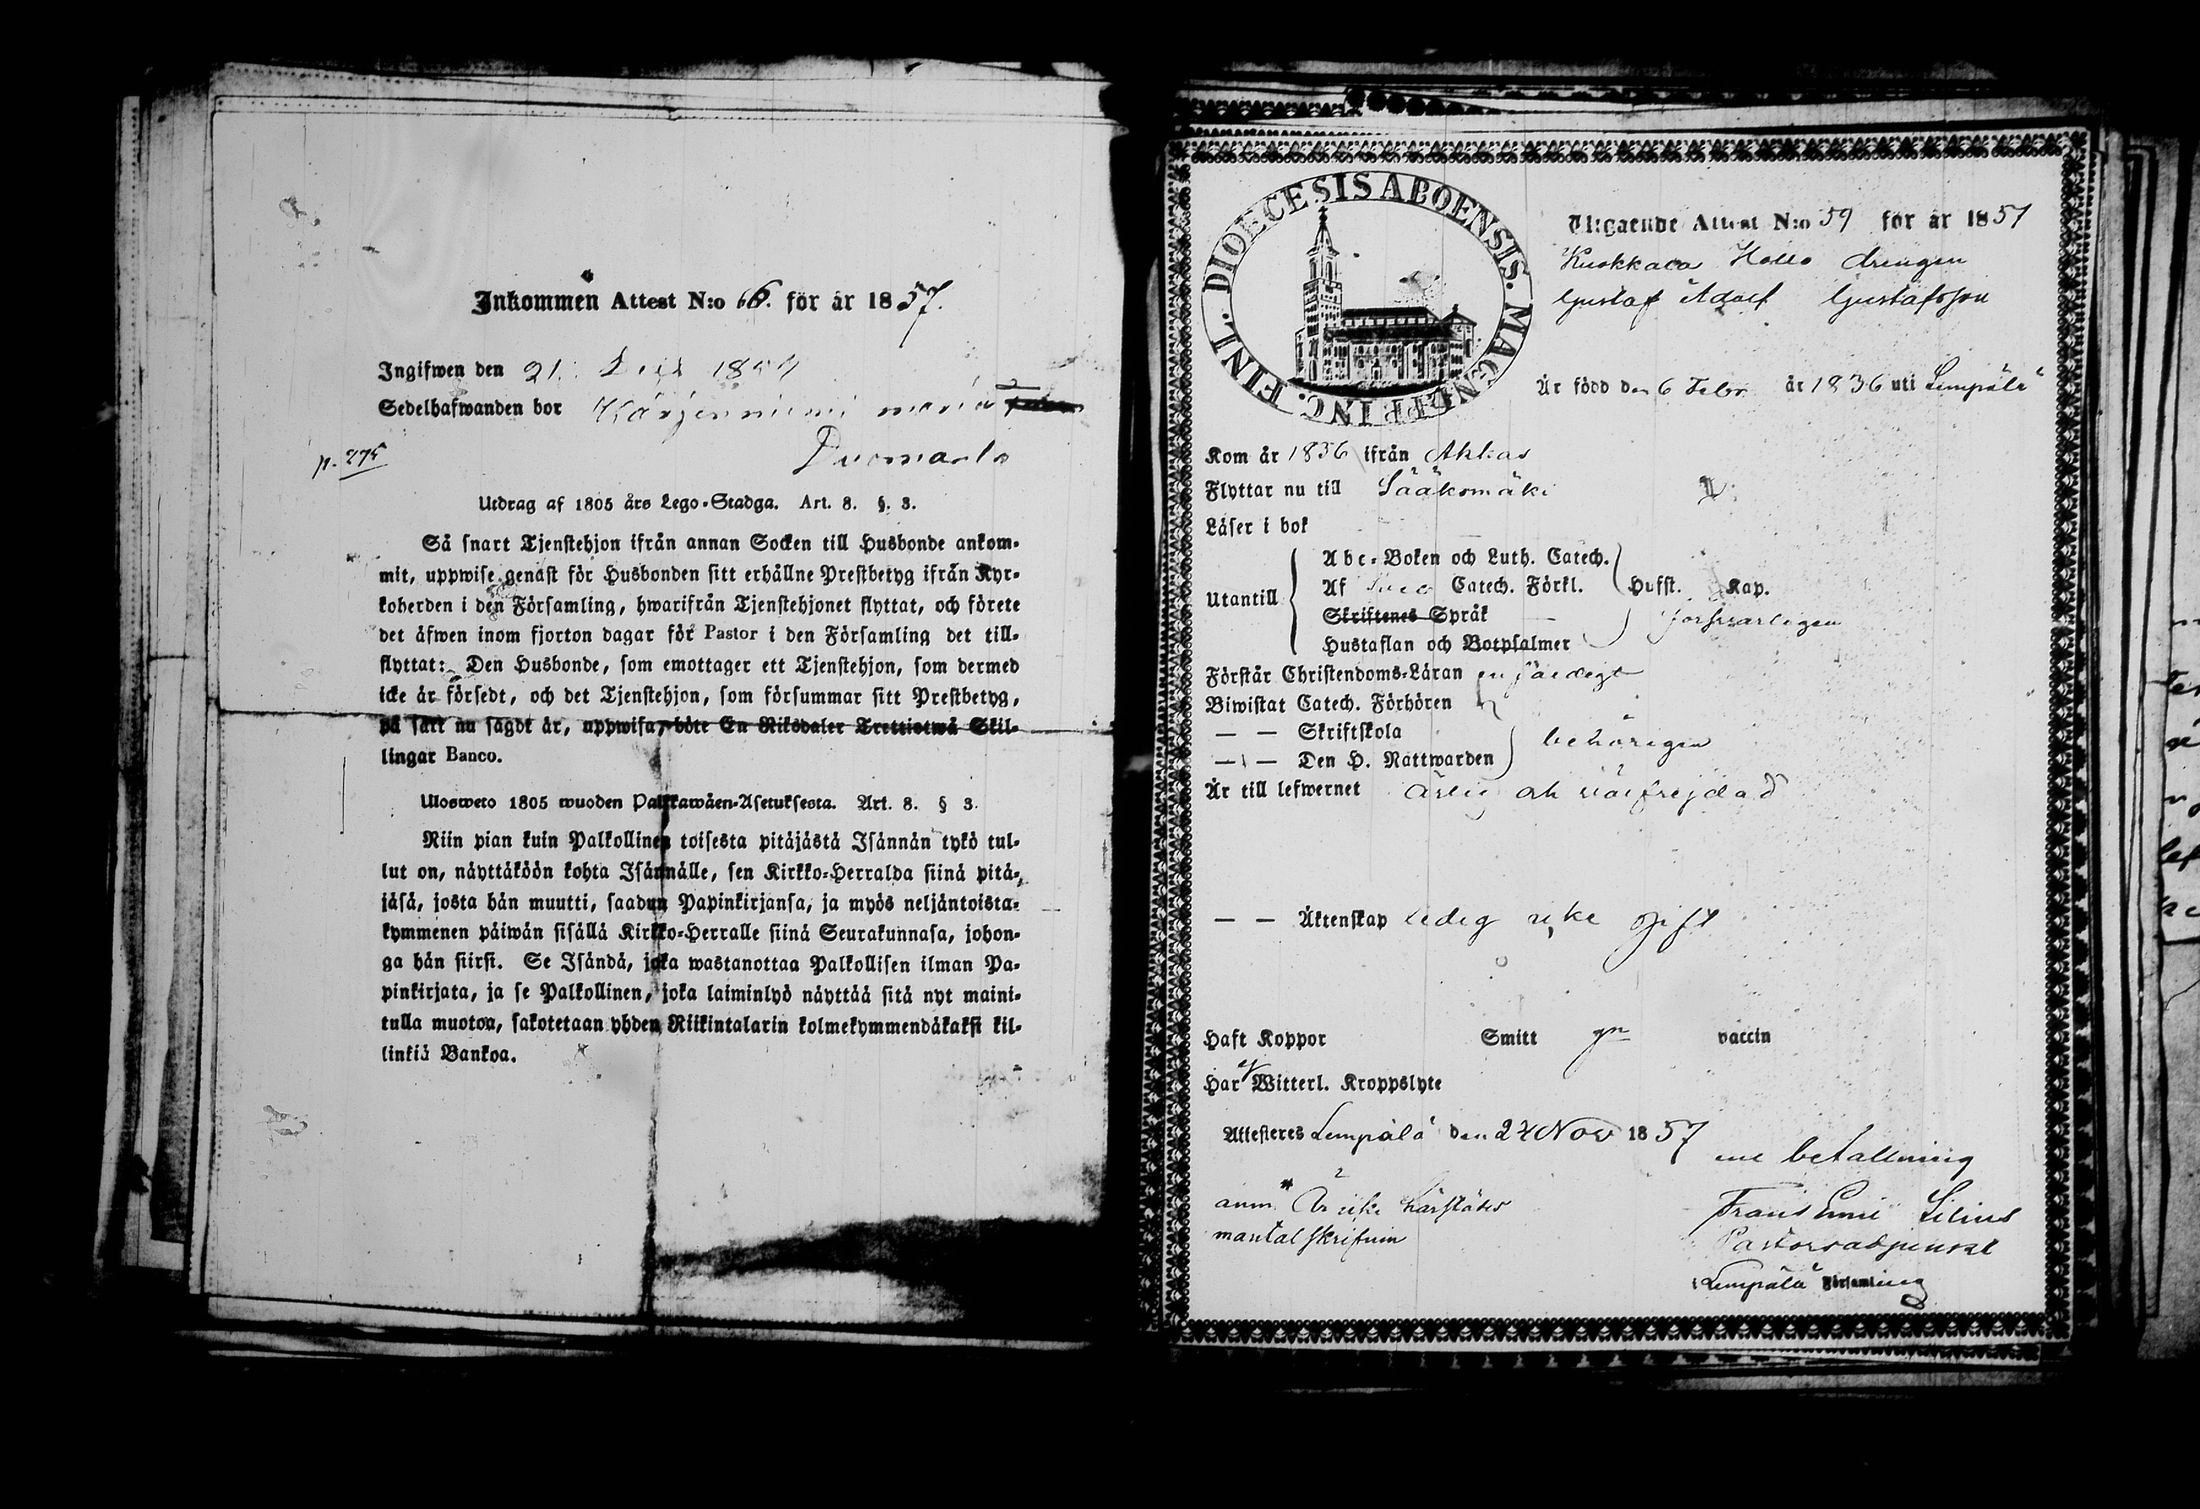 Inkommen Attest N:o 66. för år 1857.
Ingifwen den 21. 18
Sedelhafwanden bor maria
p. 275
Utdrag af 1805 års Lego-Stadga. Art. 8. §. 3.
Så snart Tjenstehjon ifrån annan Socken till Husbonde ankom-
mit, uppwise genast för Husbonden sitt erhållne Prestbetyg ifrån Kyr-
koherden i den Församling, hwarifrån Tjenstehjonet flyttat, och förete
det äfwen inom fjorton dagar för Pastor i den Församling det till-
flyttat: Den Husbonde, som emottager ett Tjenstehjon, som dermed
icke är försedt, och det Tjenstehjon, som försummar sitt Prestbetyg,
på sätt nu sagdt är, uppwisa, böte En Riksdaler Trettiotwå Skil-
lingar Banco.
Ulosweto 1805 wuoden Palkkawäen-Asetuksesta. Art. 8. § 3.
Niin pian kuin Palkollinen toisesta pitäjästä Isännän tykö tul-
lut on, näyttäköön kohta Isännälle, sen Kirkko-Herralda siinä pitä-
jäsä, josta hän muutti, saadun Papinkirjansa, ja myös neljäntoista-
kymmenen päiwän sisällä Kirkko-Herralle siinä Seurakunnasa, johon-
ga hän siirsi. Se Isändä, joka wastanottaa Palkollisen ilman Pa-
pinkirjata, ja se Palkollinen, joka laiminlyö näyttää sitä nyt maini-
tulla muotoa, sakotetaan yhden Riikintalarin kolmekymmendäkaksi kil-
linkiä Bankoa.
DIOECESIS ABOENSIS. MAGN. PRINC. FINL.
Utgaende Attest N:o 59 för år 1857
Kuokkala Hollo drengen
Gustaf Adolf Gustafsson
Är född den 6 Febr år 1836 uti Lempälä
Kom år 1856 ifrån Akkas
Flyttar nu till Sääksmäki
Läser i bok
Utantill
Abc-Boken och Luth. Catech.
Af Catech. Förkl.
Skriftenes Språk
Hustaflan och Botpsalmer
Hufst. Kap.
försvarligen
Förstår Christendoms-Läran
Biwistat Catech. Förhören
— — Skriftskola
— — Den H. Nattwarden
behörigen
Är till lefwernet ärlig och wälfrejdad
— — Äktenskap ledig icke gift
Haft Koppor Smitt gn vaccin
Har ej Witterl. Kroppslyte
Attesteres Lempälä den 24 Nov 1857
betallning
anm Är icke härstädes
mantalskrifven
Frans Emil Lilius
Pastorsadjunct
i Lempälä Församling